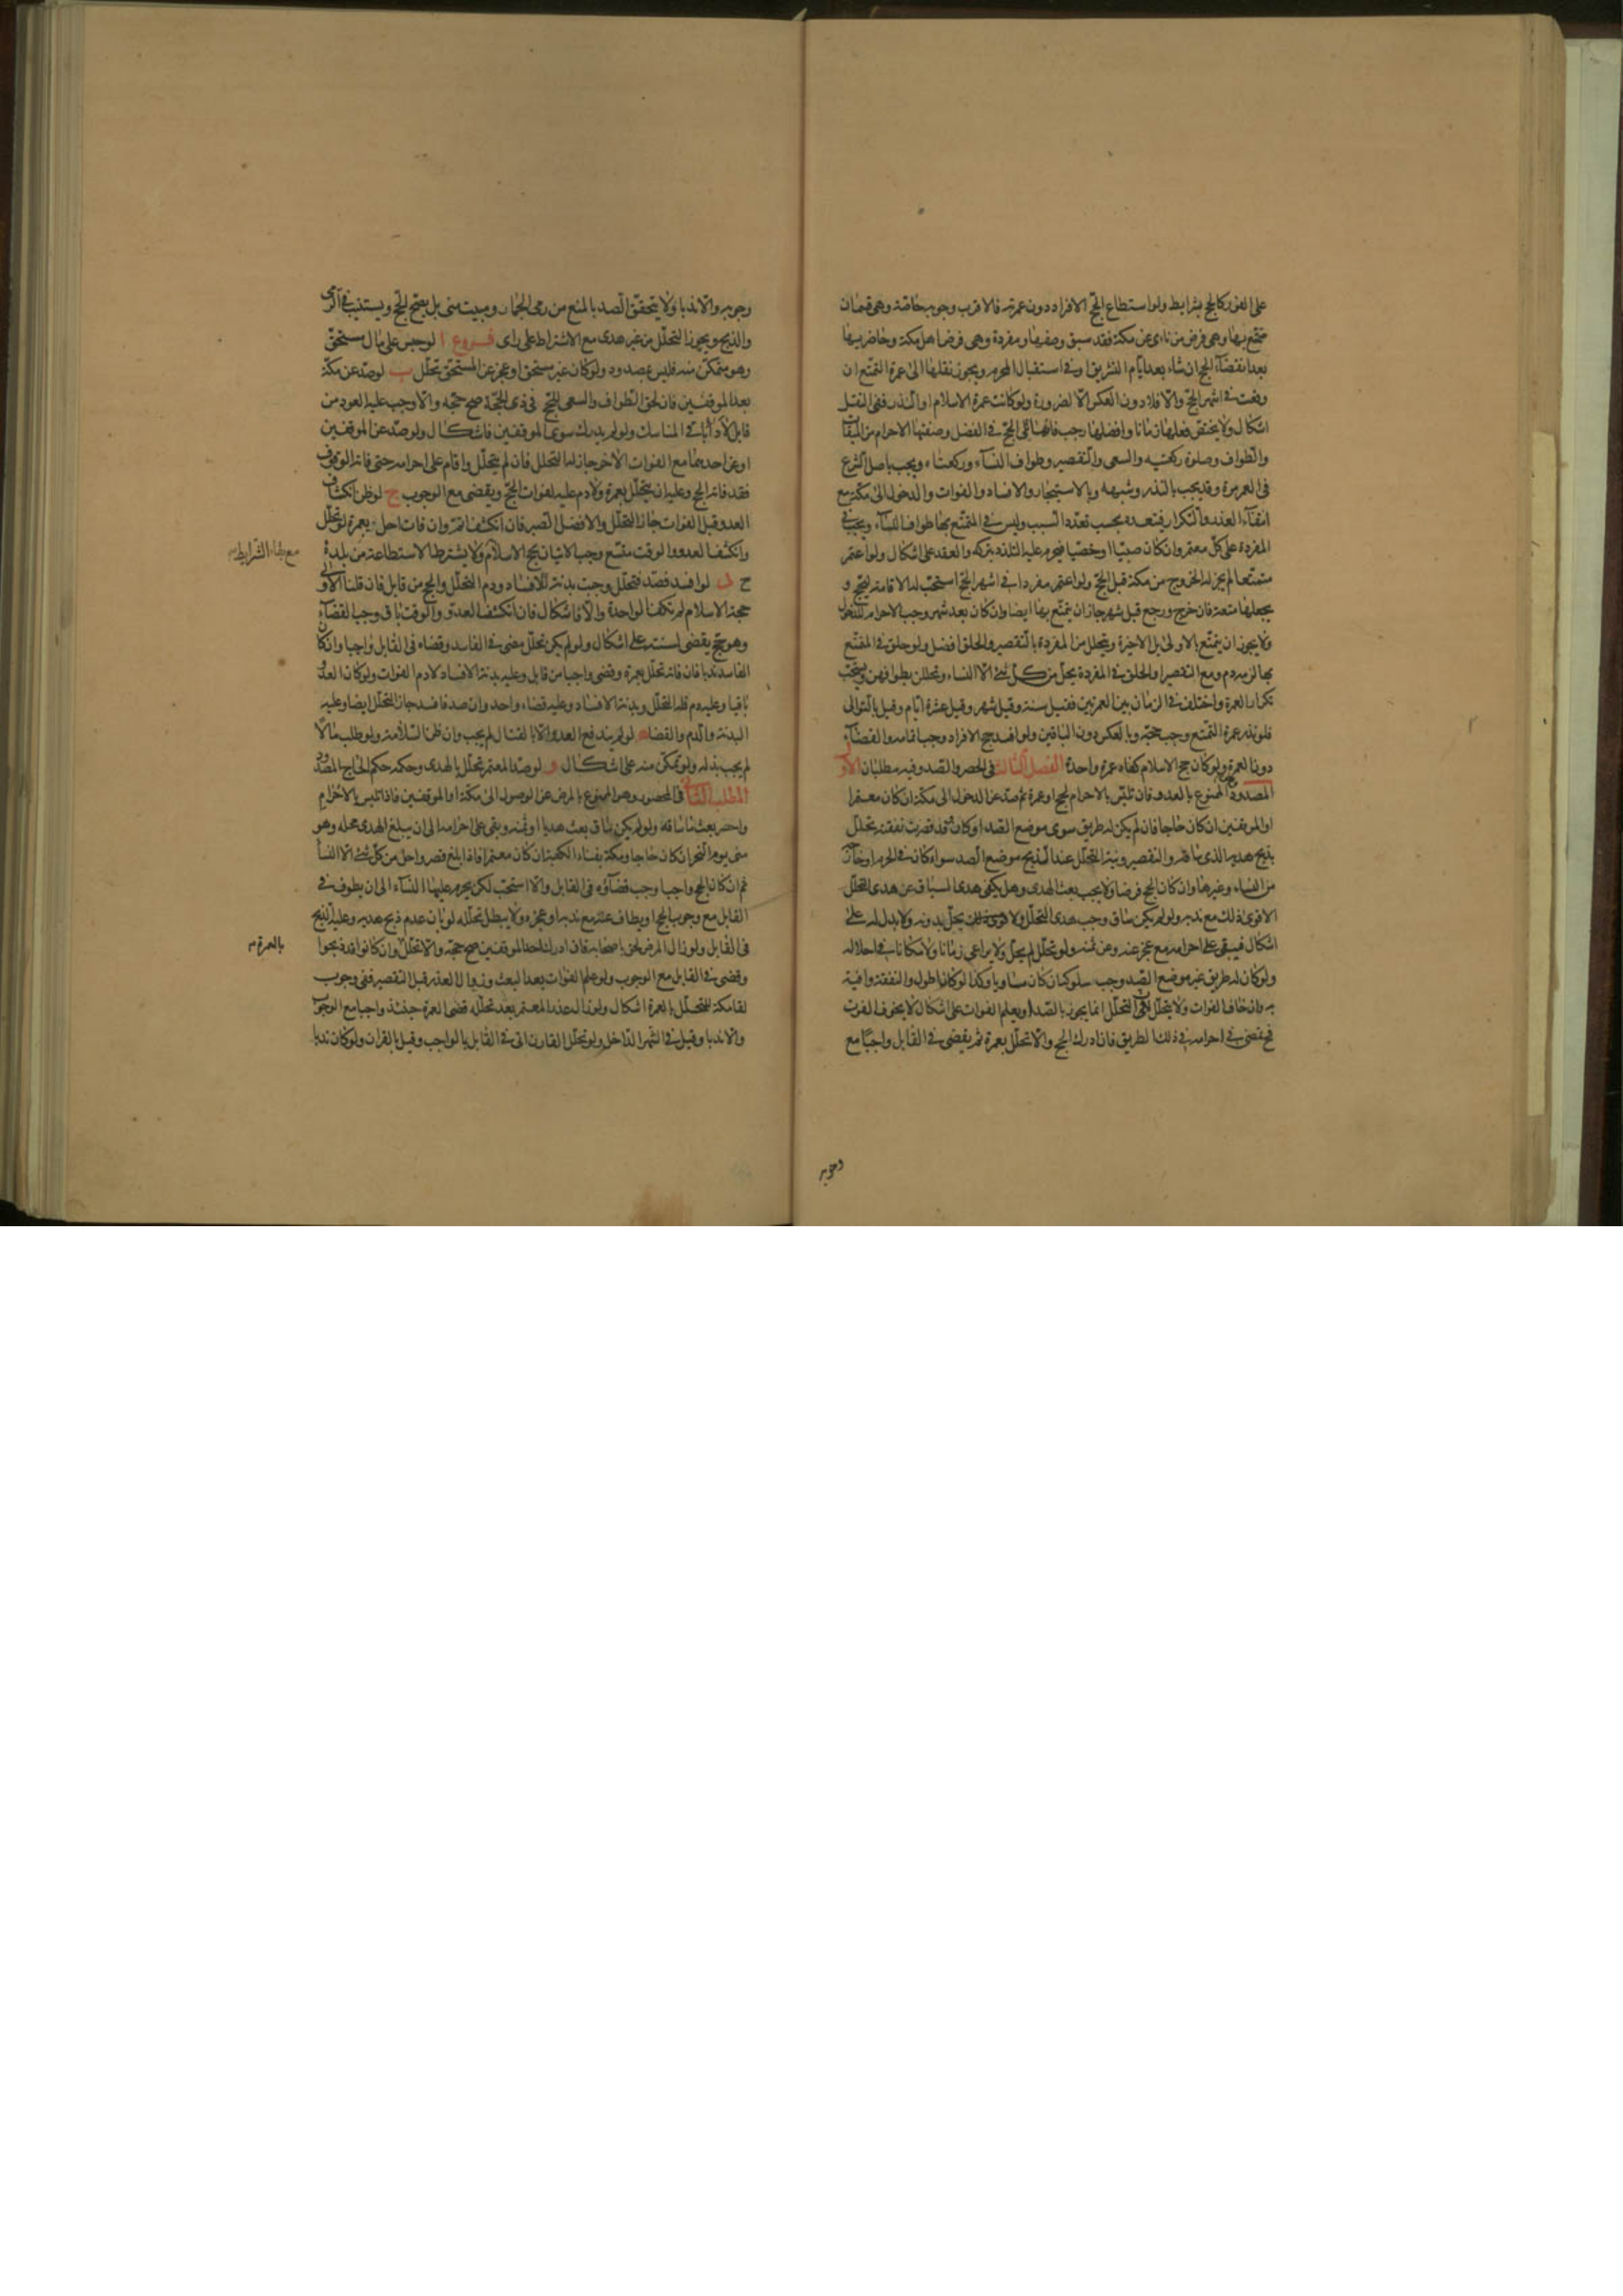 على الفور كالحج بشرايط ولو استطاع لحج الافراد دون عمرته فالاقرب وجوبه خاصة وهي قسمان
متمتع بها وهي فرض من نأى عن مكة فقد سبق وصفها ومفردة وهي فرض اهل مكة وحاضريها
بعد انقضاء الحج ان شاء بعد ايام التشريق او في استقبال المحرم ويجوز نقلها الى عمرة التمتع ان
وقعت في اشهر الحج والافلاد دون العكس الا لضرورة ولو كانت عمرة الاسلام او النذر ففي النقل
اشكال ولا يختص فعلها زمانا وافضلها رجب فانها تلي الحج في الفضل وصفتها الاحرام من الميقات
والطواف وصلوة ركعتيه والسعي والتقصير وطواف النساء وركعتاه ويجب باصل الشرع
في العمر مرة وقد يجب بالنذر وشبهه وبالاستيجار والافساد والفوات والدخول الى مكة مع
انتفاء العذر والتكرار فيتعدد بحسب تعدد السبب وليس في المتمتع بها طواف النساء ويجب في
المفردة على كل معتمر وان كان صبيا او خصيا فيحرم عليه التلذذ بتركه والعقد على اشكال ولو اعتمر
متمتعا لم يجز له الخروج من مكة قبل الحج ولو اعتمر مفردا في اشهر الحج استحب له الاقامة ليحج و
يجعلها متعة فان خرج ورجع قبل شهر جاز ان يتمتع بها ايضا وان كان بعد شهر وجب الاحرام للدخول
ولا يجوز ان يتمتع بالاولى بل الاخيرة ويتحلل من المفردة بالتقصير والحلق افضل ولو حلق في المتمتع
بها لزمه دم ومع التقصير او الحلق في المفردة يحل من كل شئ الا النساء وتحللن بطوافهن ويستحب
تكرار العمرة واختلف في الزمان بين العمرتين فقيل سنة وقيل شهر وقيل عشرة ايام وقيل بالتوالي
فلو نذر عمرة التمتع وجب حجته وبالعكس دون الباقين ولو افسد حج الافراد وجب اتمامه والقضاء
دون العمرة ولو كان حج الاسلام كفاه عمرة واحدة الفصل الثالث في الحصر والصد وفيه مطلبان الاول
المصدود الممنوع بالعدو فان تلبس بالاحرام لحج او عمرة ثم صد عن الدخول الى مكة ان كان معتمرا
او الموقفين ان كان حاجا فان لم يكن له طريق سوى موضع الصد او كان وقد قصرت نفقته تحلل
بذبح هديه الذي ساقه والتقصير ونية التحلل عند الذبح موضع الصد سواء كان في الحرم او خارجه
من النساء وغيرها وان كان الحج فرضا ولا يجب بعث الهدي وهل يكفي هدي السياق عن هدي التحلل
الاقوى ذلك مع ندبه ولو لم يكن ساق وجب هدي التحلل ولا يحل بدونه ولا بدل له على
اشكال فيبقى على احرامه مع عجزه عنه وعن ثمنه ولو تحلل لم يحل ولا يراعي زمانا ولا مكانا في احلاله
ولو كان له طريق غير موضع الصد وجب سلوكه ان كان مساويا وكذا لو كان اطول والنفقة وافية
به وان خاف الفوات ولا يتحلل لان التحلل انما يجوز بالصد او يعلم الفوات على اشكال لا بخوف الفوت
فحـ يمضي في احرامه في ذلك الطريق فان ادرك الحج والا تحلل بعمرة ثم يقضي في القابل واجبا مع
وجوبه
وجوبه والا ندبا ولا يتحقق الصد بالمنع من رمي الجمار ومبيت منى بل يصح الحج ويستنيب في الرمي
والذبح ويجوز التحلل من غير هدي مع الاشتراط على رأي فروع ا لو حبس على مال مستحق
وهو متمكن منه فليس بمصدود ولو كان غير مستحق او عجز عن المستحق تحلل ب لو صد عن مكة
بعد الموقفين فان لحق الطواف والسعي للحج في ذي الحجة صح حجه والا وجب عليه العود من
قابل لاداء باقي المناسك ولو لم يدرك سوى الموقفين فاشكال ولو صد عن الموقفين
او عن احدهما مع الفوات الاخر جاز له التحلل فان لم يتحلل واقام على احرامه حتى فاته الوقوف
فقد فاته الحج وعليه ان يتحلل بعمرة ولا دم عليه لفوات الحج ويقضي مع الوجوب ج لو ظن انكشاف
العدو قبل الفوات جاز التحلل والافضل الصبر فان انكشف اتم وان فات احل بعمرة لو تحلل
وانكشف العدو والوقت متسع وجب الاتيان بحج الاسلام ولا يشترط الاستطاعة من بلده
مع بقاء الشرايط
ح د لو افسد فصد فتحلل وجبت بدنة للافساد ودم التحلل والحج من قابل فان قلنا الاولى
حجة الاسلام لم تكف الواحدة والا فاشكال فان انكشف العدو والوقت باق وجب القضاء
وهو حج يقضى لسنته على اشكال ولو لم يكن تحلل مضى في الفاسد وقضاه في القابل واجبا وان كان
الفاسد ندبا فان فاته تحلل بعمرة وقضى واجبا من قابل وعليه بدنة الافساد لا دم الفوات ولو كان العدو
باقيا وعليه دم فله التحلل وبدنة الافساد وعليه قضاء واحد وان صد فافسد جاز التحلل ايضا وعليه
البدنة والدم والقضاء ه لو لم يندفع العدو الا بالقتال لم يجب وان ظن السلامة ولو طلب مالا
لم يجب بذله ولو تمكن منه على اشكال و لو صد المعتمر تحلل بالهدي وحكمه حكم الحاج المصدود
المطلب الثاني في المحصور وهو الممنوع بالمرض عن الوصول الى مكة او الموقفين فاذا تلبس بالاحرام
واحصر بعث ما ساقه ولو لم يكن ساق بعث هديا او ثمنه وبقي على احرامه الى ان يبلغ الهدي محله وهو
منى يوم النحر ان كان حاجا ومكة بفناء الكعبة ان كان معتمرا فاذا بلغ قصر واحل من كل شئ الا النساء
ثم ان كان الحج واجبا وجب قضاؤه في القابل والا استحب لكن يحرم عليه النساء الى ان يطوف في
القابل مع وجوب الحج او يطاف عنه مع ندبه او عجزه ولا يبطل تحلله لو بان عدم ذبح هديه وعليه الذبح
في القابل ولو زال المرض لحق باصحابه فان ادرك احد الموقفين صح حجه والا تحلل وان كانوا قد ذبحوا
بالعمرة
وقضى في القابل مع الوجوب ولو علم الفوات بعد البعث وزوال العذر قبل التقصير ففي وجوب
لقاء مكة للتحلل بالعمرة اشكال ولو زال عذر المعتمر بعد تحلله قضى العمرة حينئذ واجبا مع الوجوب
والا ندبا وقيل في الشهر الداخل ولو تحلل القارن اتى في القابل بالواجب وقيل بالقران ولو كان ندبا